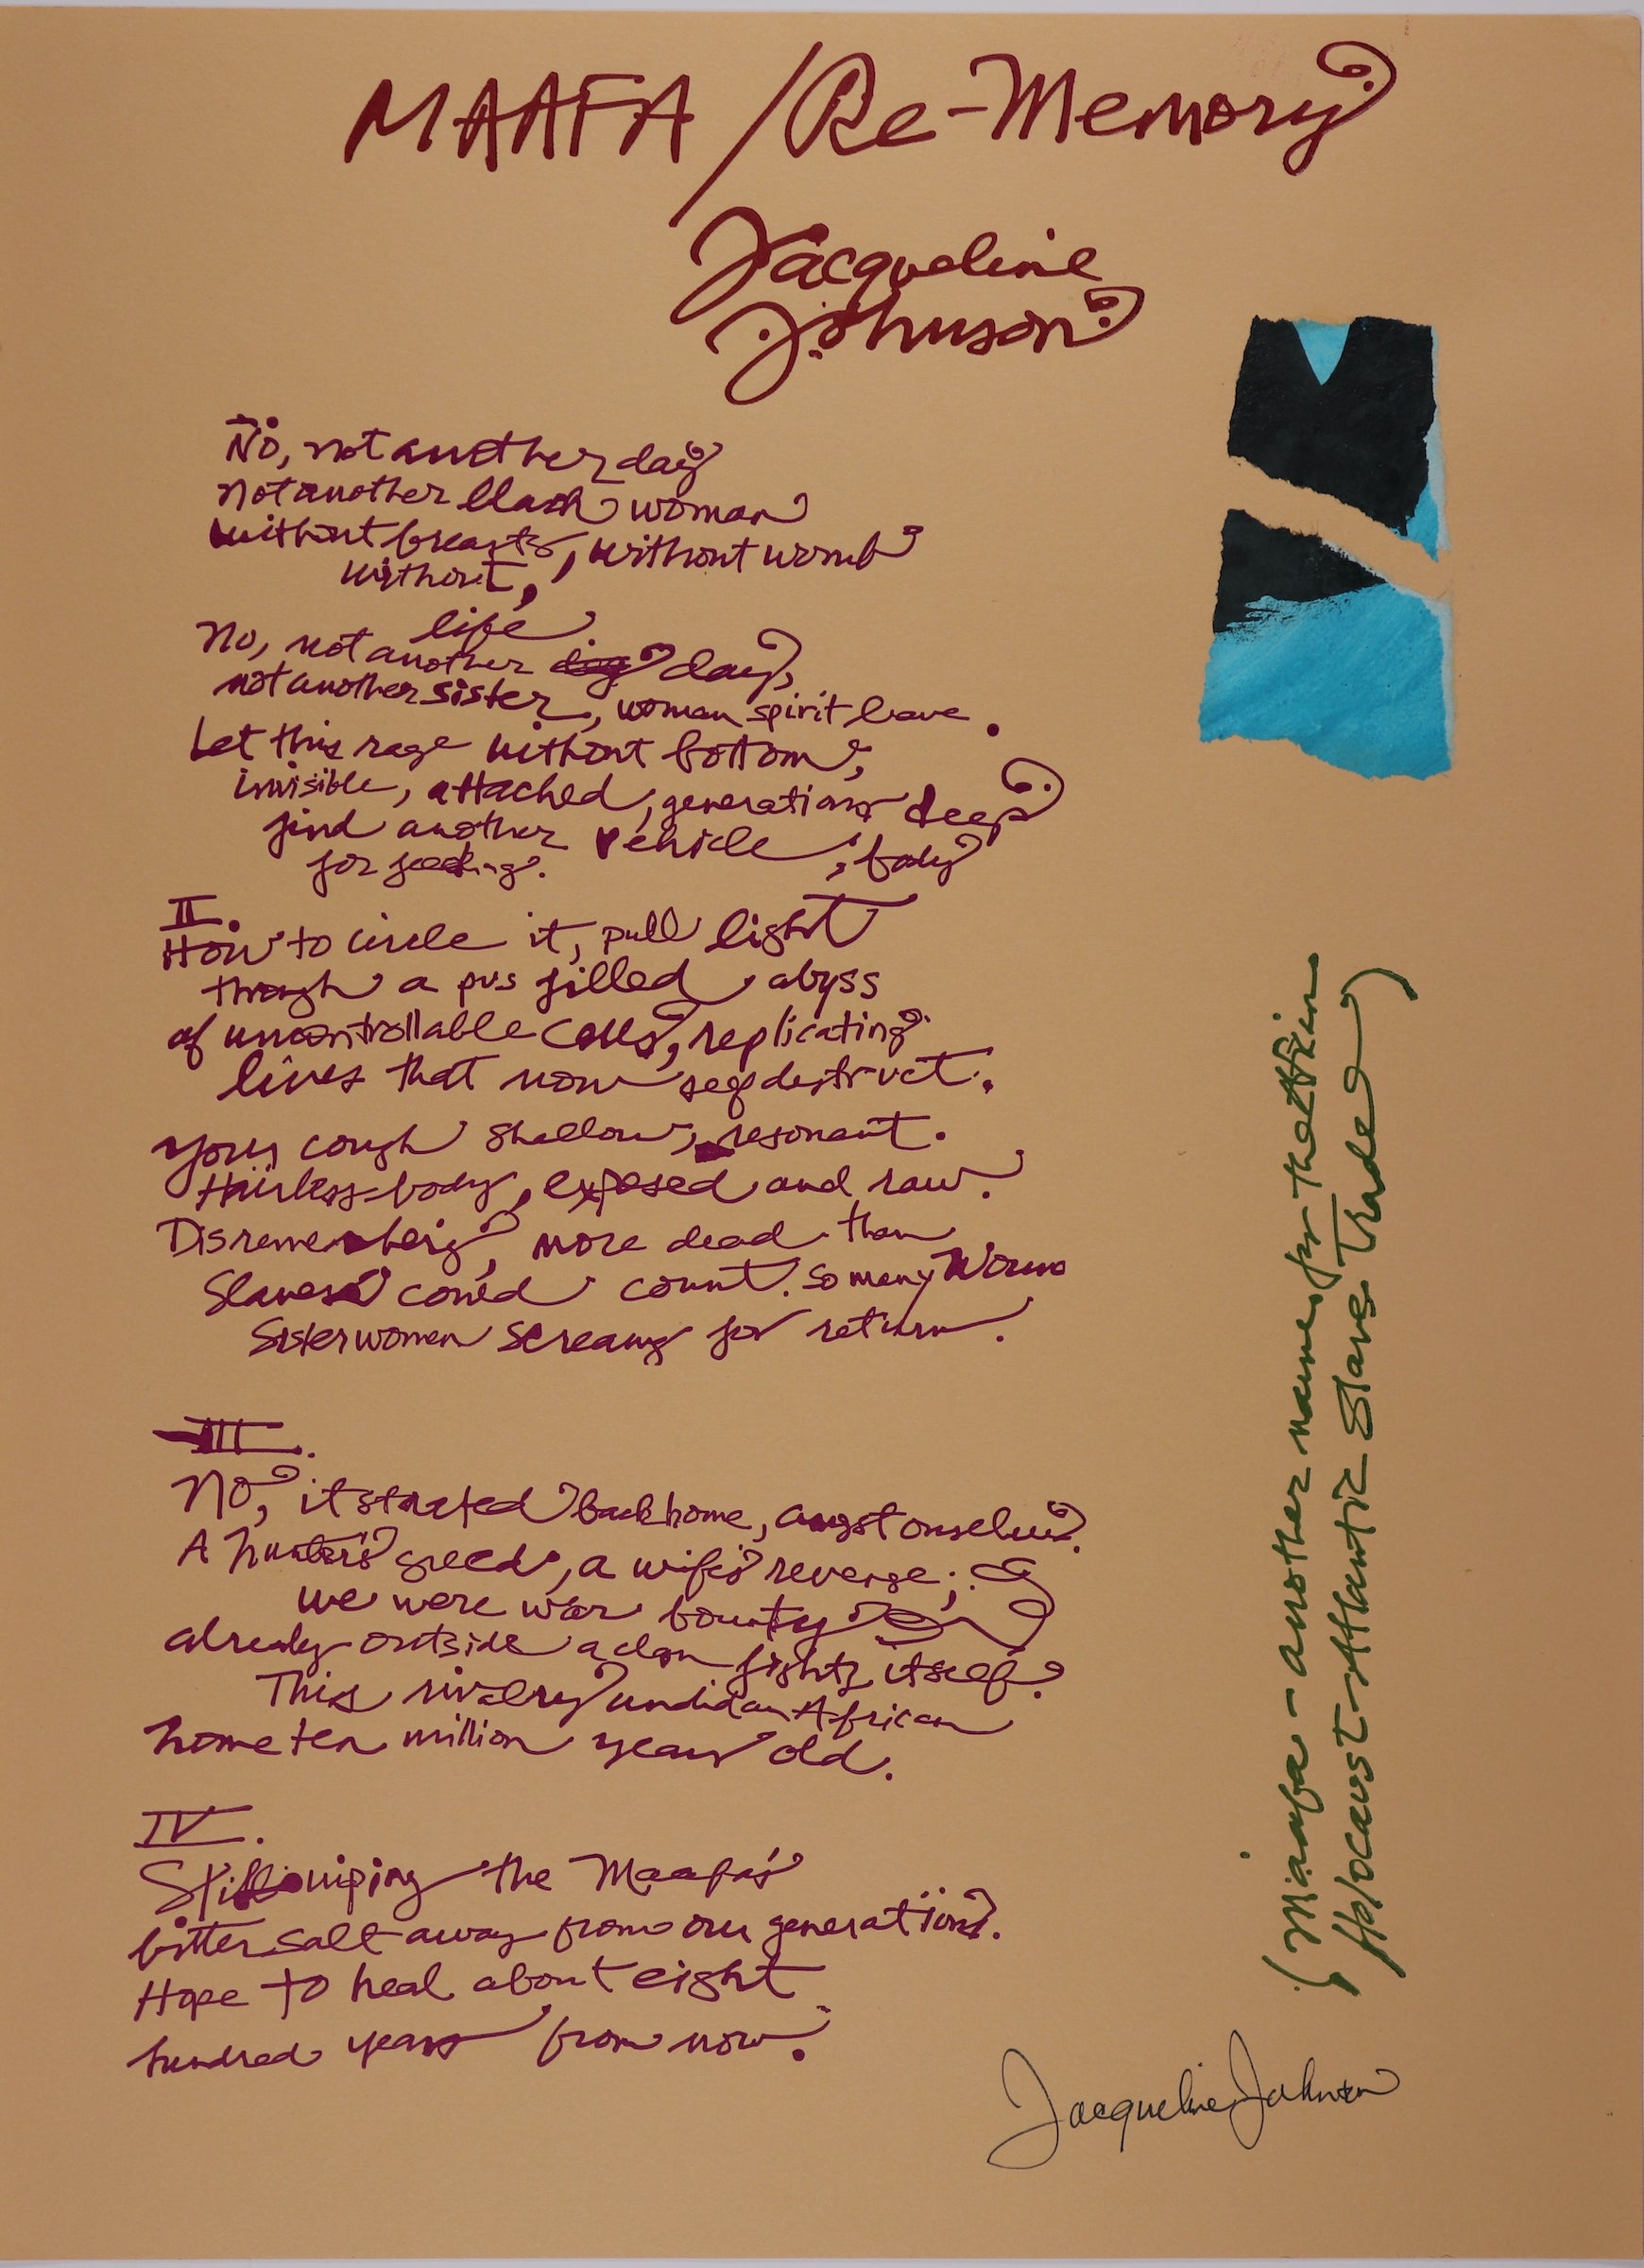 MAAFA / Re-Memory
Jacqueline
Johnson
No, not another day
not another black woman
without breasts, without womb
without,
life.
No, not another day,
not another sister, woman spirit leave.
Let this rage without bottom,
invisible, attached, generations deep
find another vehicle, body
for feeding.
II.
How to circle it, pull light
through a pus filled abyss
of uncontrollable cells, replicating
lives that now self destruct.
Your cough shallow, resonant.
Hairless body, exposed and raw.
Disremembering, more dead than
Slaves could count. So many
Sisterwomen screams for return.
III.
No, it started back home, angst ourselves.
A hunter's greed, a wife's revenge;
we were war bounty
already outside a clan fights itself.
This rivalry African
home ten million years old.
IV.
Still wiping the Maafa's
bitter salt away from our generations.
Hope to heal about eight
hundred years from now.
(Maafa - another name for the African
Holocaust - Atlantic Slave Trade)
Jacqueline Johnson